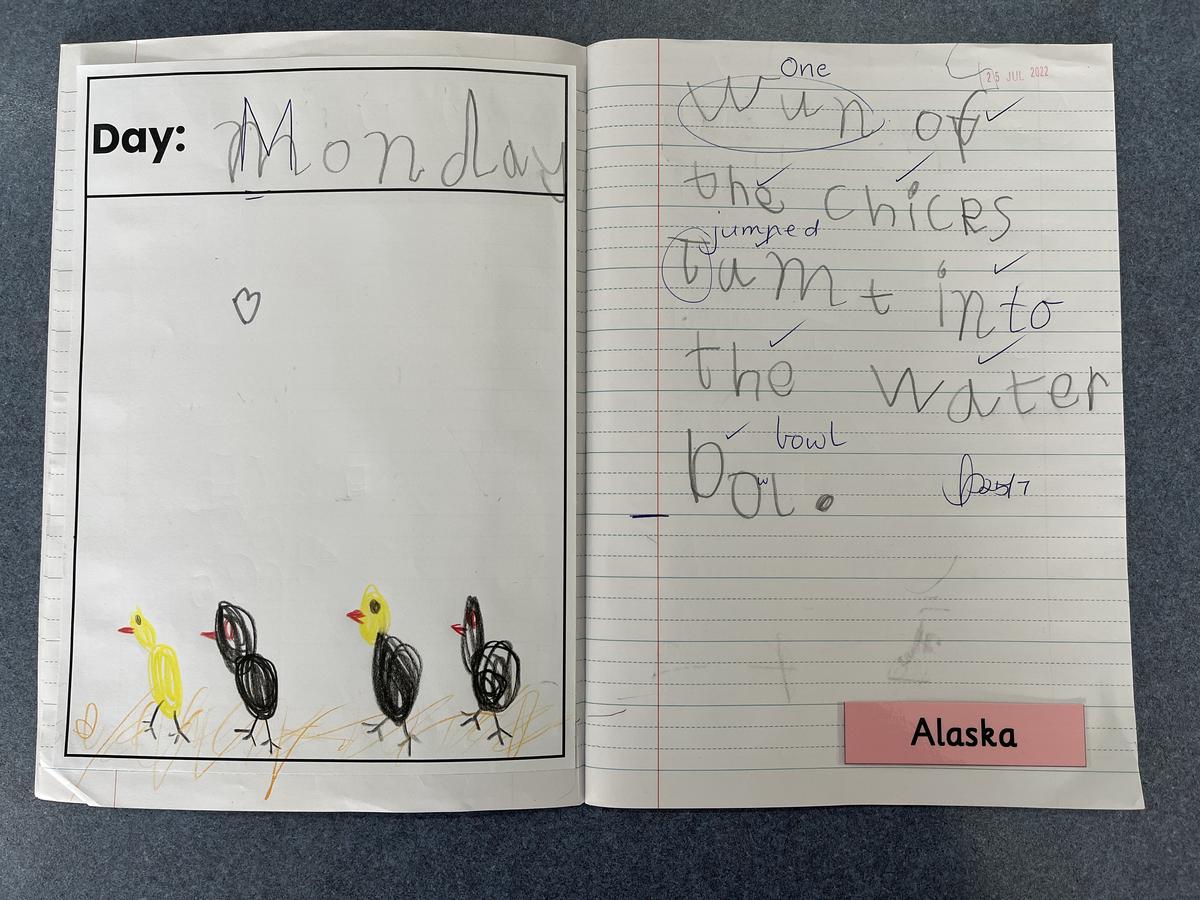 Day: Monday
25 JUL 2022
One
Wun of
the chicks
jumped
tamt into
the water
bowl
bol.
w
25/7
Alaska